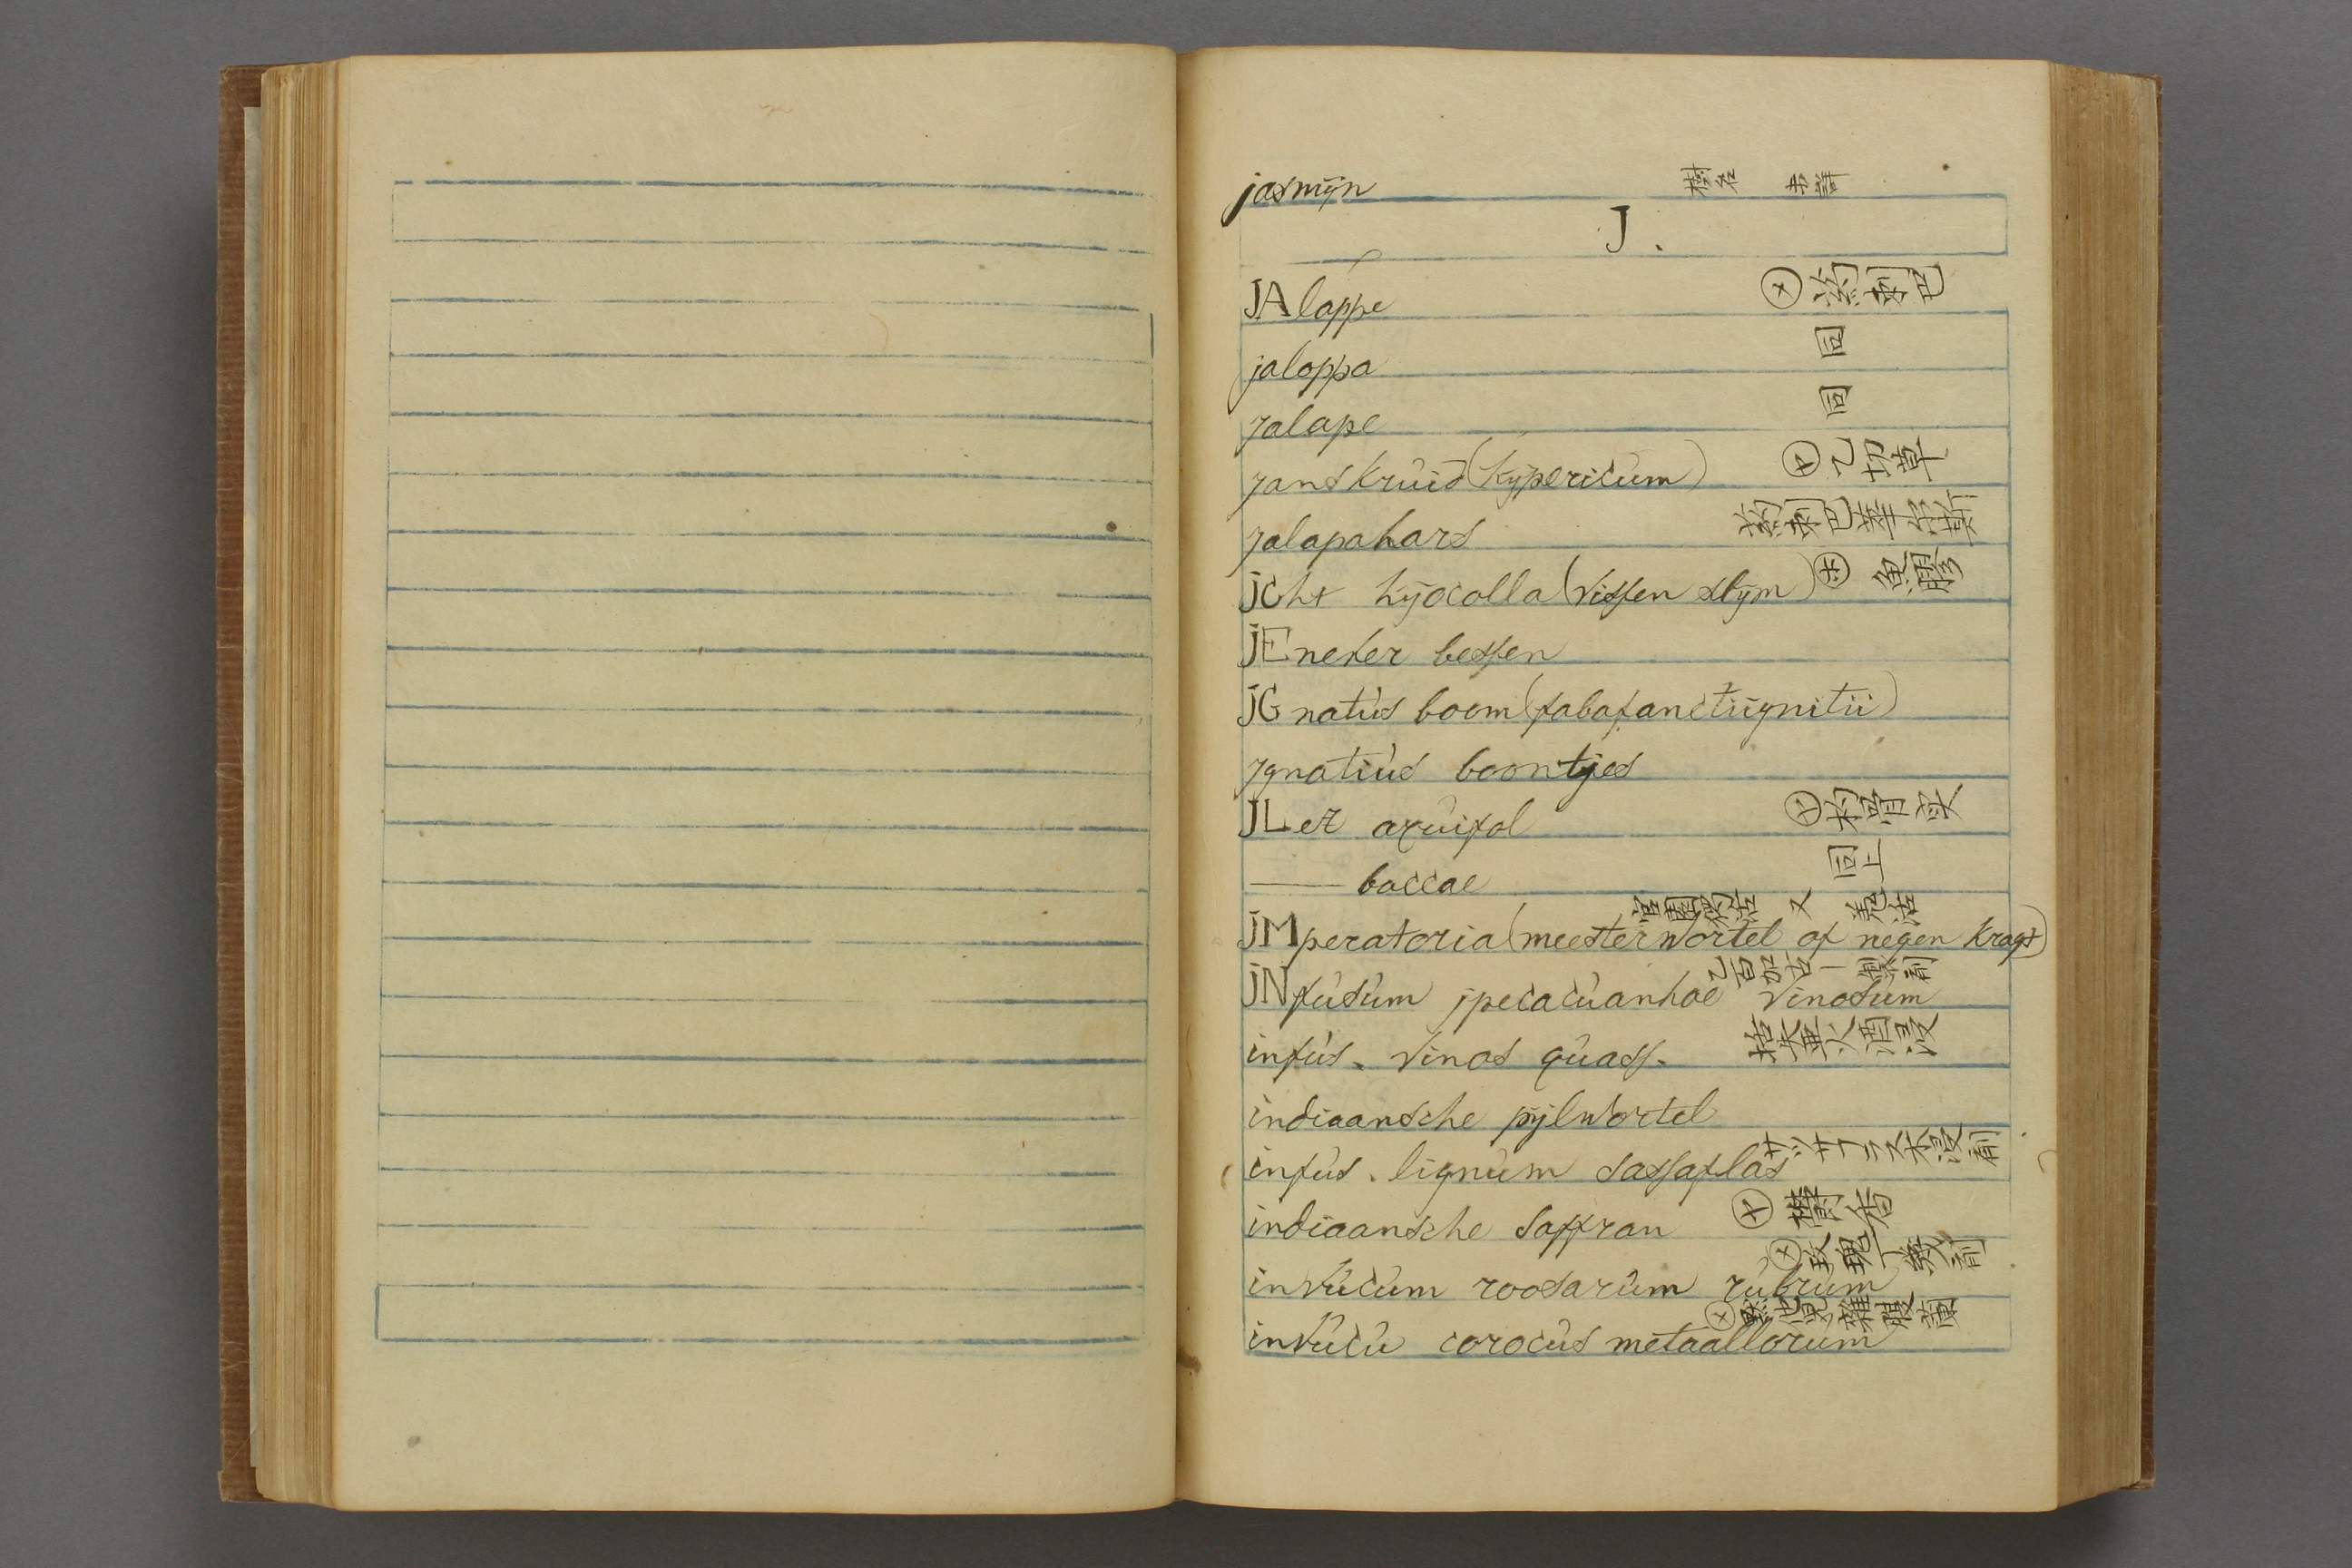 jasmijn 樹名 未詳
J.
JAlappe 葯剌巴
jaloppa 同
jalape 同
janskruid (hijpericum) 乙切草
jalapahars 葯剌巴華尓斯
jcht hijocolla (vissen slijm) 魚膠
jEnever bessen
jGnatús boom (fabafanctiignitii)
jgnatiús boontjes
JLex aquifol 枸骨实
—— baccae 同上
jMperatoria (meester wortel of negen kragt) 又 羌活
jNfúsúm jpecacúanhae vinosúm
infús. vinos qúass. 酒浸
indiaansche pijlwortel
infús. lignúm sassaflas サッサフラス木浸剤
indiaansche saffran 欝金
invúcúm roosarúm rúbrúm
invúcú corocús metaallorum